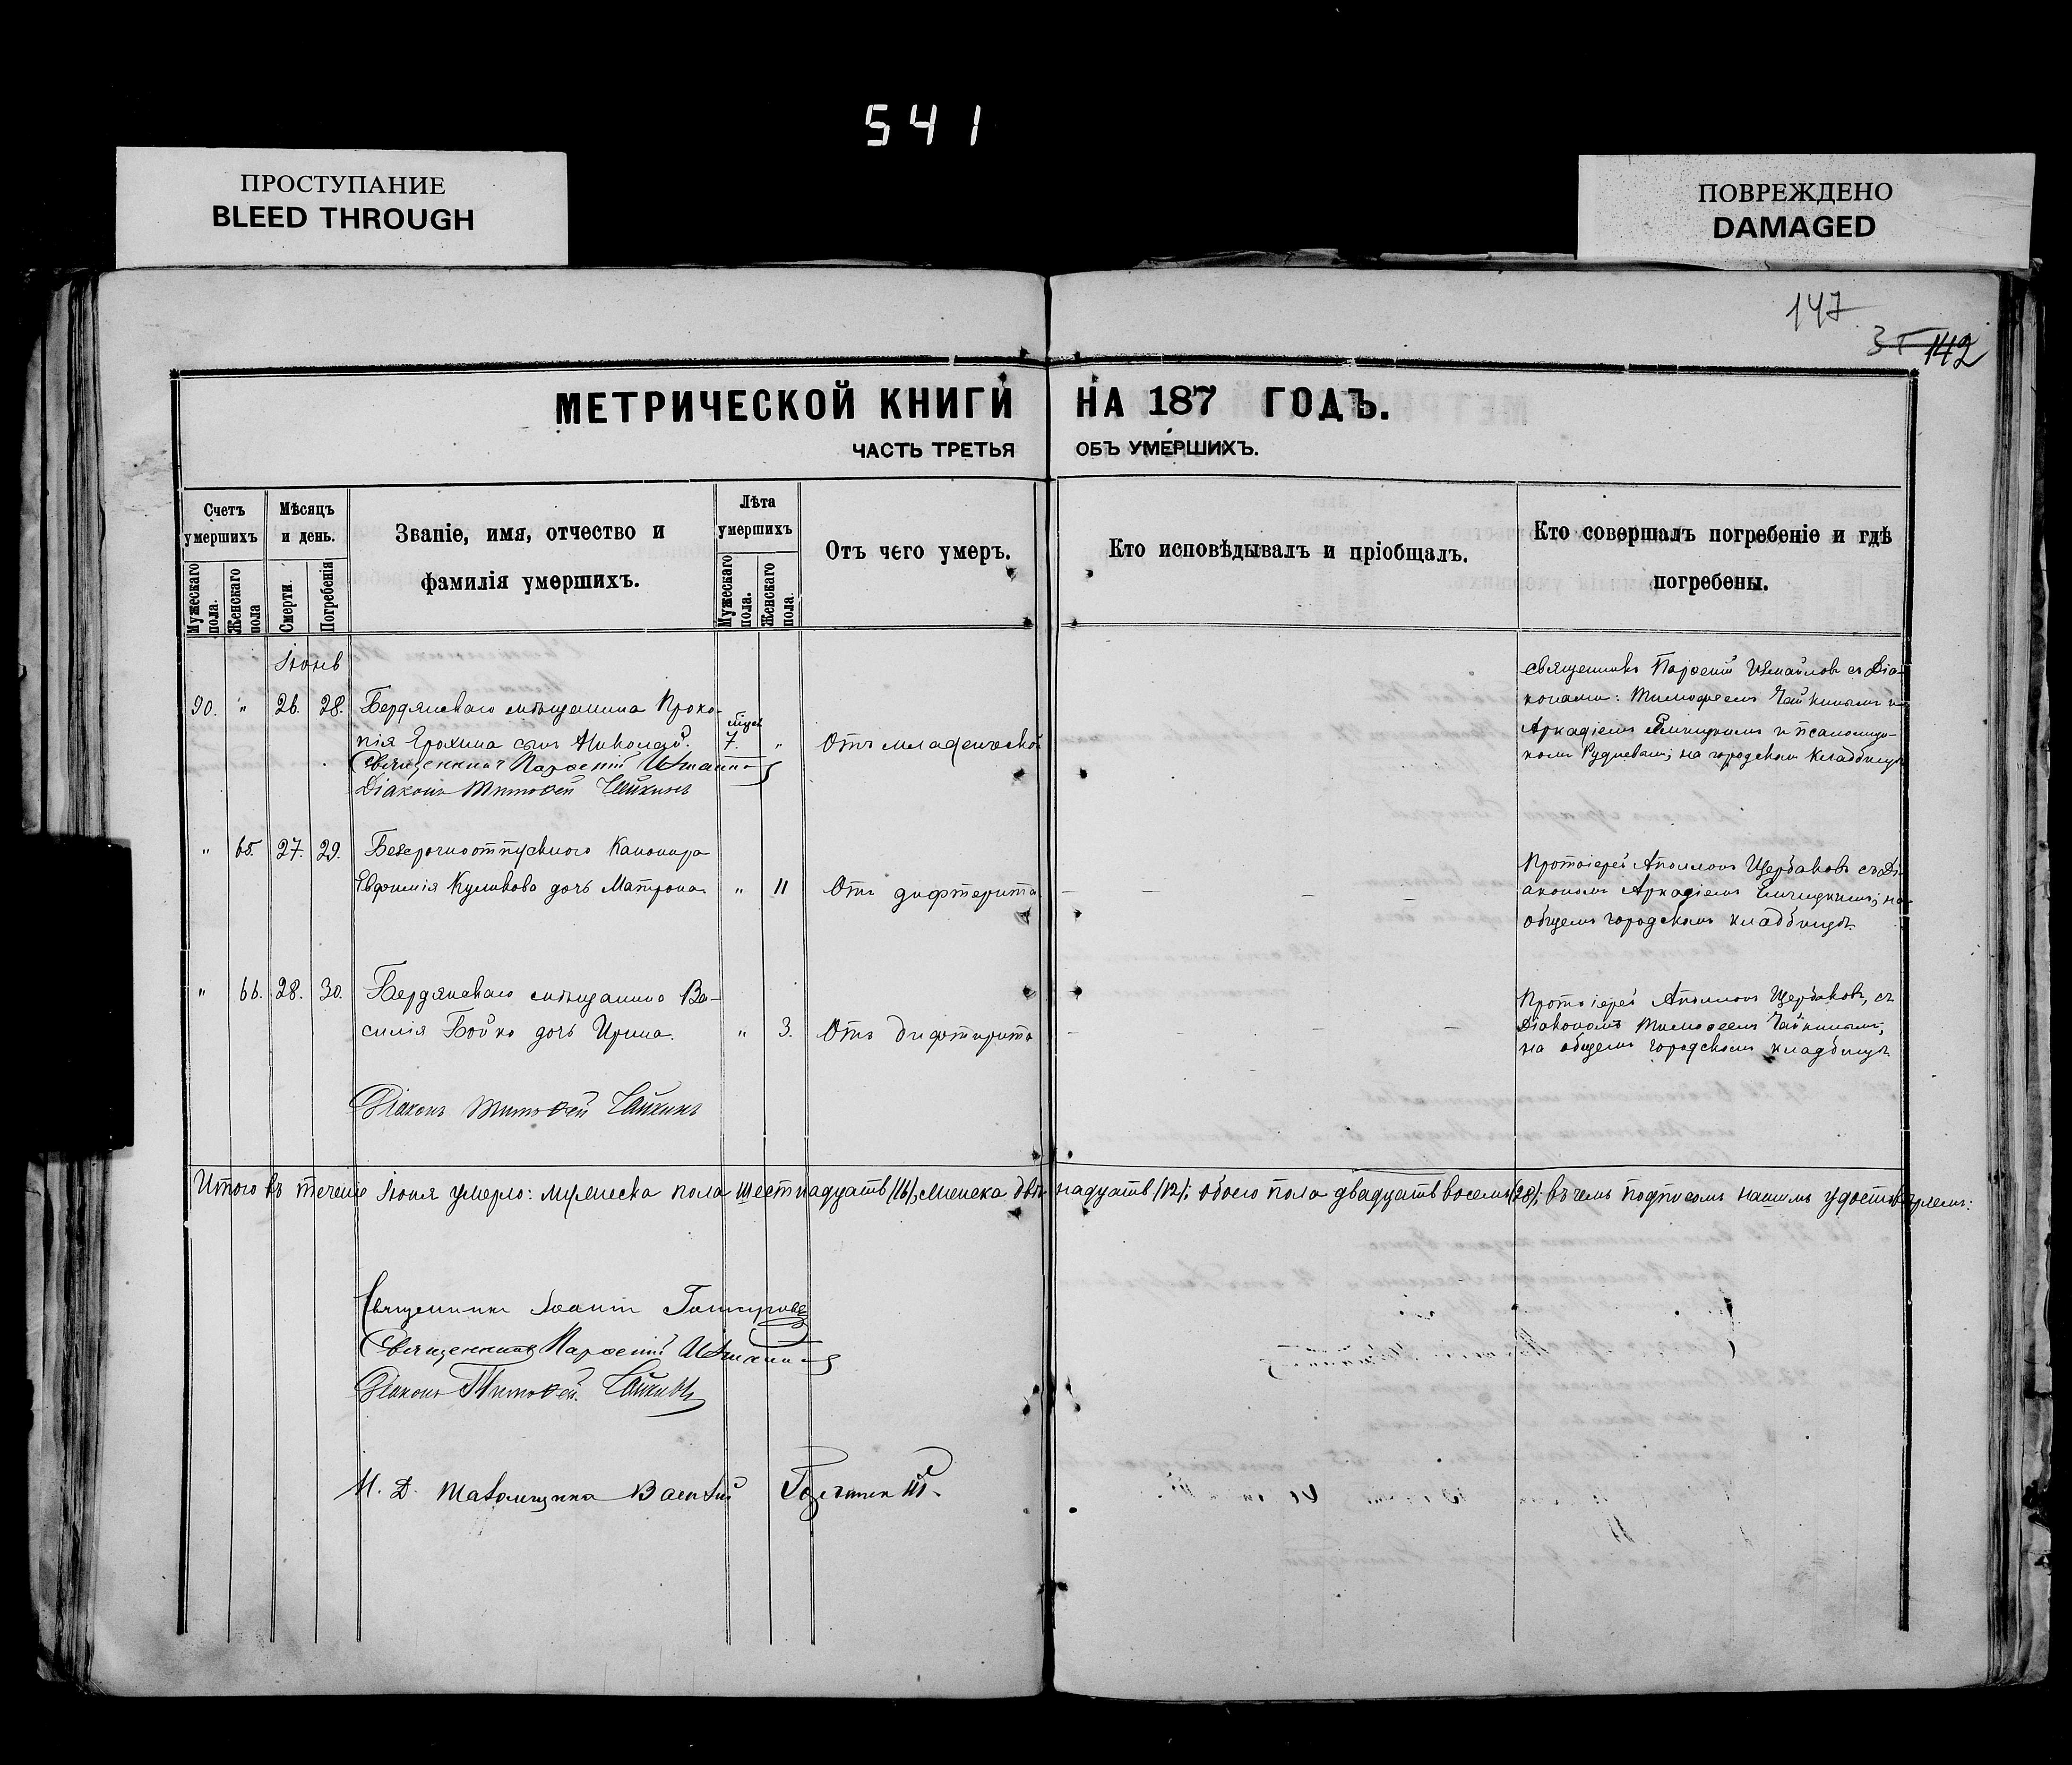 541
ПРОСТУПАНИЕ
BLEED THROUGH
ПОВРЕЖДЕНО
DAMAGED
147
142
МЕТРИЧЕСКОЙ КНИГИ НА 187 ГОДЪ.
ЧАСТЬ ТРЕТЬЯ ОБЪ УМЕРШИХЪ.
Счетъ умершихъ
Мужескаго пола.
Женскаго пола
Мѣсяцъ и день.
Смерти.
Погребенія
Званіе, имя, отчество и
фамилія умершихъ.
Лѣта умершихъ
Мужескаго пола.
Женскаго пола
Отъ чего умеръ.
Кто исповѣдывалъ и пріобщалъ.
Кто совершалъ погребеніе и гдѣ
погребены.
Іюнь
90. " 26. 28. Бердянскаго мѣщанина Проко-
пія Ерохина сынъ Николай. 7. " Отъ младенческой
Священникъ Парѳеній Измайловъ
Діаконъ Тимоѳей Чайкинъ
Священникъ Парѳеній Измайловъ съ Діа-
конами: Тимоѳеемъ Чайкинымъ и
Аркадіемъ и псаломщи-
комъ Рудневымъ; на городскомъ кладбищѣ
" 65. 27. 29. Безсрочноотпускного Канонира
Евфимія Куликова дочь Матрона " 11 Отъ дифтерита
Протоіерей Аполлонъ Щербаковъ съ Ді-
акономъ Аркадіемъ на
общемъ городскомъ кладбищѣ
" 66. 28. 30. Бердянскаго мѣщанина Ва-
силія Бойко дочь Ирина. " 3. Отъ дифтерита
Протоіерей Аполлонъ Щербаковъ, съ
Діакономъ Тимоѳеемъ Чайкинымъ,
на общемъ городскомъ кладбищѣ
Діаконъ Тимоѳей Чайкинъ
Итого въ теченіе Іюня умерло: мужеска пола шестнадцать /16/, женска двѣнадцать /12/; обоего пола двадцать восемь /28/; въ чемъ подписомъ нашимъ удостовѣряемъ:
Священникъ Іоаннъ
Священникъ Парѳеній Измайловъ
Діаконъ Тимоѳей Чайкинъ
И. Д. Псаломщика Василій